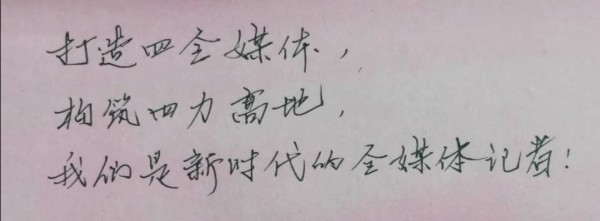 打造四全媒体，
构筑四力高地，
我们是新时代的全媒体记者！